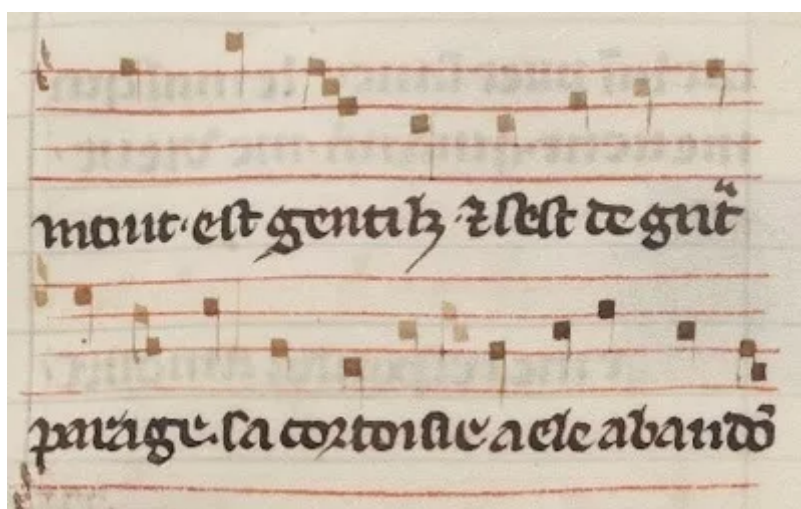 mout · est gentilz · ⁊ sest de gᵃt
parage . sa cortoisie a ele abandō